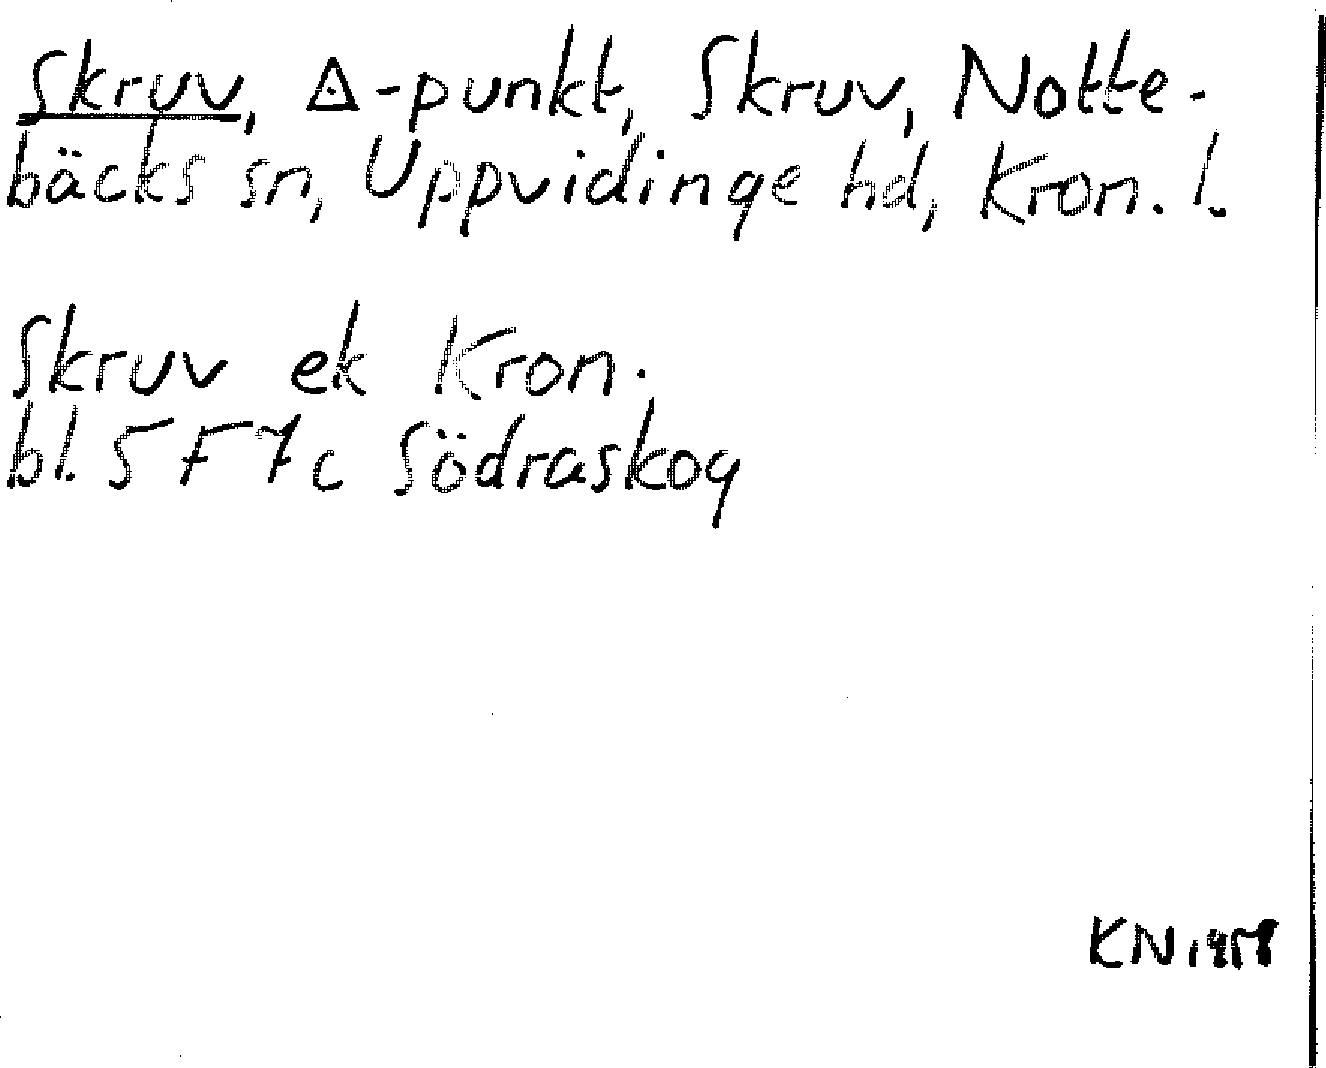 Skruv, △-punkt, Skruv, Notte-
bäcks sn, Uppvidinge hd, Kron. l.
Skruv ek Kron.
bl. 5 F 7c Södraskog
KN 1958